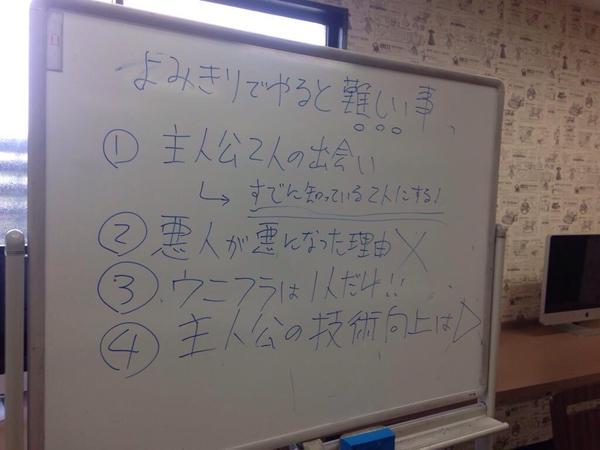 よみきりでやると難しい事、
① 主人公2人の出会い
↳ すでに知っている2人にする!
② 悪人が悪になった理由 X
③ ウニフラは1人だけ!!
④ 主人公の技術向上は▷